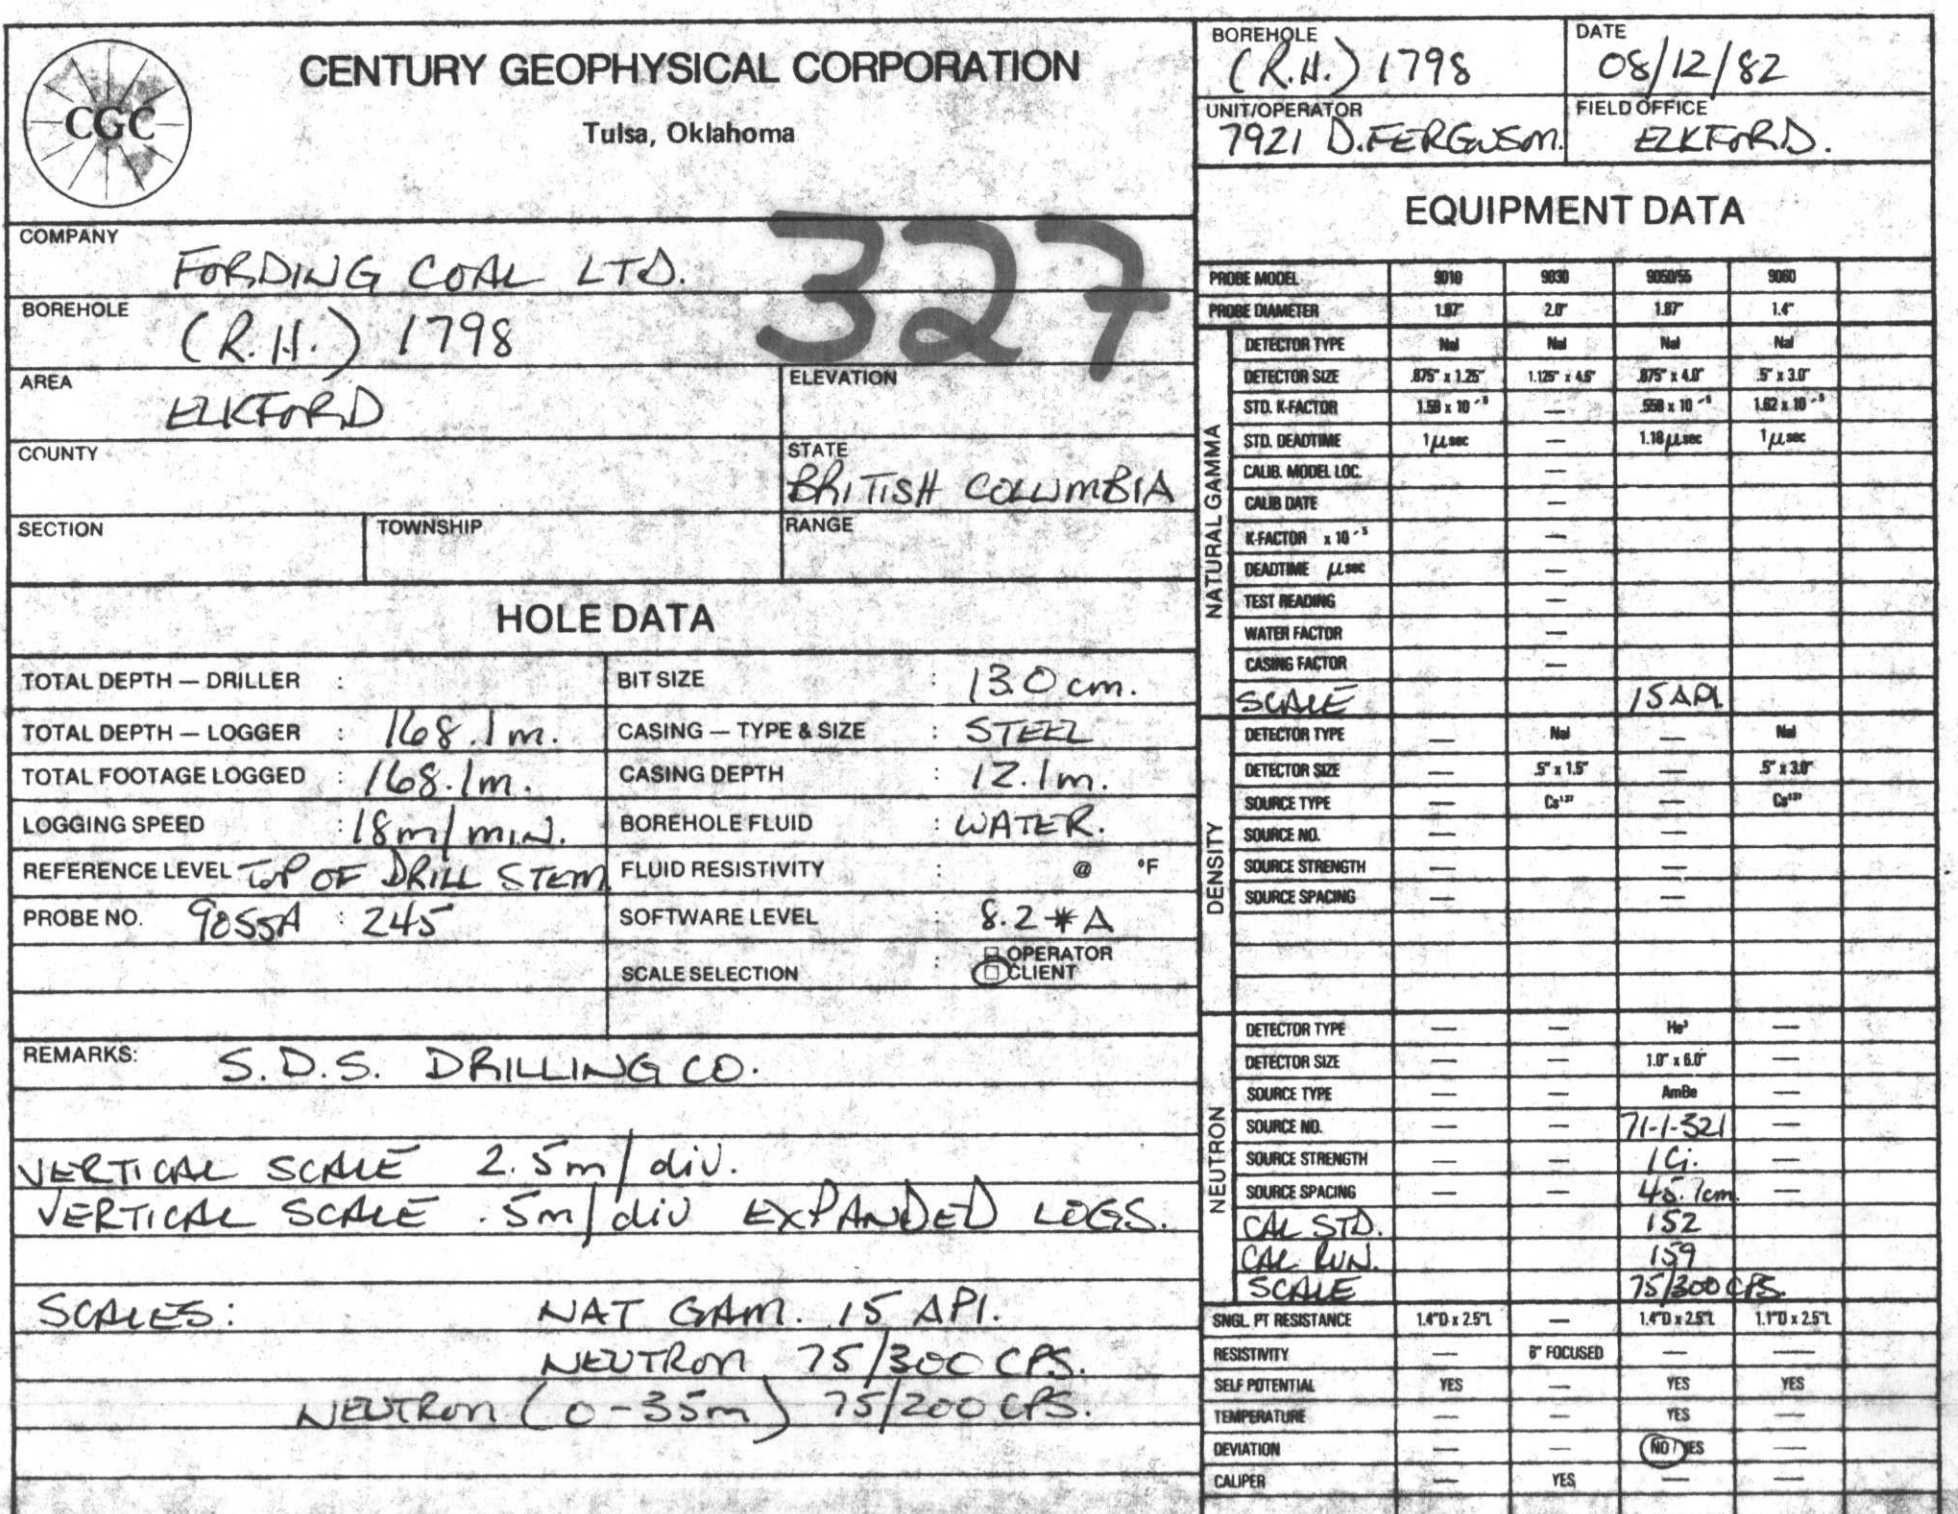 CGC
CENTURY GEOPHYSICAL CORPORATION
Tulsa, Oklahoma
327
COMPANY
FORDING COAL LTD.
BOREHOLE
(R.H.) 1798
AREA
ELKFORD
ELEVATION
COUNTY
STATE
BRITISH COLUMBIA
SECTION TOWNSHIP RANGE
HOLE DATA
TOTAL DEPTH — DRILLER :
BIT SIZE : 13.0 cm.
TOTAL DEPTH — LOGGER : 168.1 m.
CASING — TYPE & SIZE : STEEL
TOTAL FOOTAGE LOGGED : 168.1m.
CASING DEPTH : 12.1m.
LOGGING SPEED : 18m/min.
BOREHOLE FLUID : WATER.
REFERENCE LEVEL TOP OF DRILL STEM
FLUID RESISTIVITY : @ °F
PROBE NO. 9055A : 245
SOFTWARE LEVEL : 8.2 * A
SCALE SELECTION : □ OPERATOR
□ CLIENT
REMARKS: S.D.S. DRILLING CO.
VERTICAL SCALE 2.5m/div.
VERTICAL SCALE .5m/div EXPANDED LOGS.
SCALES: NAT GAM. 15 API.
NEUTRON 75/300 CPS.
NEUTRON (0-35m) 75/200 CPS.
BOREHOLE
(R.H.) 1798
DATE
08/12/82
UNIT/OPERATOR
7921 D.FERGUSON.
FIELD OFFICE
ELKFORD.
EQUIPMENT DATA
PROBE MODEL 9010 9030 9050/55 9060
PROBE DIAMETER 1.87" 2.0" 1.87" 1.4"
NATURAL GAMMA
DETECTOR TYPE NaI NaI NaI NaI
DETECTOR SIZE .875" x 1.25" 1.125" x 4.5" .875" x 4.0" .5" x 3.0"
STD. K-FACTOR 1.59 x 10⁻⁵ — .558 x 10⁻⁵ 1.62 x 10⁻⁵
STD. DEADTIME 1 μsec — 1.18 μsec 1 μsec
CALIB. MODEL LOC. —
CALIB DATE —
K-FACTOR x 10⁻⁵ —
DEADTIME μsec —
TEST READING —
WATER FACTOR —
CASING FACTOR —
SCALE 15 API.
DENSITY
DETECTOR TYPE — NaI — NaI
DETECTOR SIZE — .5" x 1.5" — .5" x 3.0"
SOURCE TYPE — Cs¹³⁷ — Cs¹³⁷
SOURCE NO. — —
SOURCE STRENGTH — —
SOURCE SPACING — —
NEUTRON
DETECTOR TYPE — — He³ —
DETECTOR SIZE — — 1.0" x 6.0" —
SOURCE TYPE — — AmBe —
SOURCE NO. — — 71-1-321 —
SOURCE STRENGTH — — 1Ci. —
SOURCE SPACING — — 45.7cm. —
CAL STD. 152
CAL RUN. 159
SCALE 75/300 CPS.
SNGL PT RESISTANCE 1.4"D x 2.5"L — 1.4"D x 2.5"L 1.1"D x 2.5"L
RESISTIVITY — 6" FOCUSED — —
SELF POTENTIAL YES — YES YES
TEMPERATURE — — YES —
DEVIATION — — NO/YES —
CALIPER — YES — —